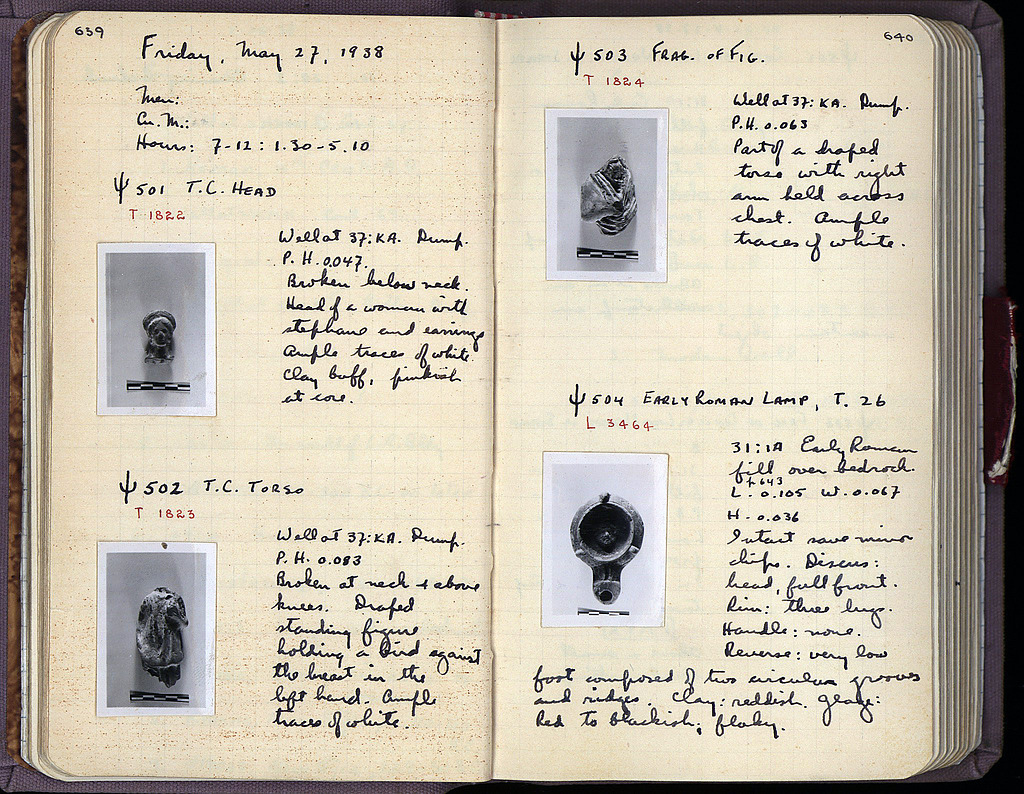 639
Friday, May 27, 1938
Men:
Cu. M.:
Hours: 7-12: 1.30-5.10
Ψ 501 T.C. HEAD
T 1822
Well at 37:KA. Dump.
P. H. 0.047.
Broken below neck.
Head of a woman with
stephane and earrings
Ample traces of white.
Clay buff, pinkish
at core.
Ψ 502 T.C. TORSO
T 1823
Well at 37:KA. Dump.
P. H. 0.083
Broken at neck + above
knees. Draped
standing figure
holding a bird against
the breast in the
left hand. Ample
traces of white.
640
Ψ 503 FRAG. OF FIG.
T 1824
Well at 37:KA. Dump.
P.H. 0.063
Part of a draped
torso with right
arm held across
chest. Ample
traces of white.
Ψ 504 EARLY ROMAN LAMP, T. 26
L 3464
31:IA Early Roman
fill over bedrock.
L. 0.105 W. 0.067
H. 0.036
Intact save minor
chips. Discus:
head, full front.
Rim: three lugs.
Handle: none.
Reverse: very low
foot composed of two circular grooves
and ridges. Clay: reddish. Glaze:
Red to blackish, flaky.